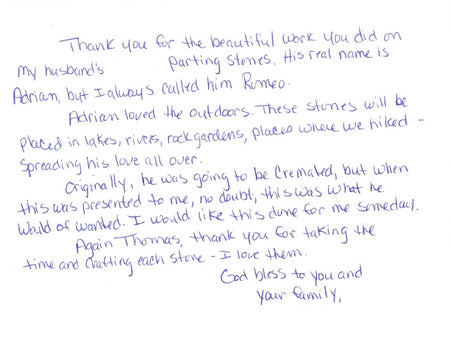 Thank you for the beautiful work you did on
my husband's Parting Stones. His real name is
Adrian, but I always called him Romeo.
Adrian loved the outdoors. These stones will be
placed in lakes, rivers, rock gardens, places where we hiked -
Spreading his love all over.
Originally, he was going to be Cremated, but when
this was presented to me, no doubt, this was what he
Would of wanted. I would like this done for me someday.
Again Thomas, thank you for taking the
time and crafting each stone - I love them.
God bless to you and
your family,